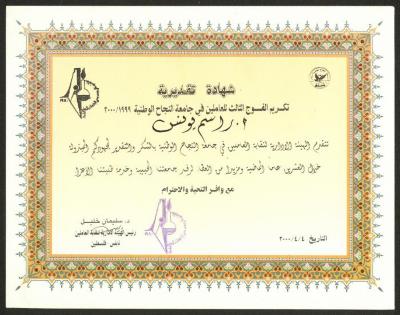 شهادة تقديرية
تكريم الفوج الثالث للعاملين في جامعة النجاح الوطنية ١٩٩٩/٢٠٠٠
أ. راسم يونس
تتقدم الهيئة الادارية لنقابة العاملين في جامعة النجاح الوطنية بالشكر والتقدير لجهودكم المبذولة
خلال العشرين عاماً الماضية ومزيداً من العطاء لرفد جامعتنا الحبيبة وخدمة طلبتنا الأعزاء
مع وافر التحية والاحترام
د. سليمان خليل
رئيس الهيئة الادارية لنقابة العاملين
نابلس - فلسطين
التاريخ ٢٠٠٠/٤/٤